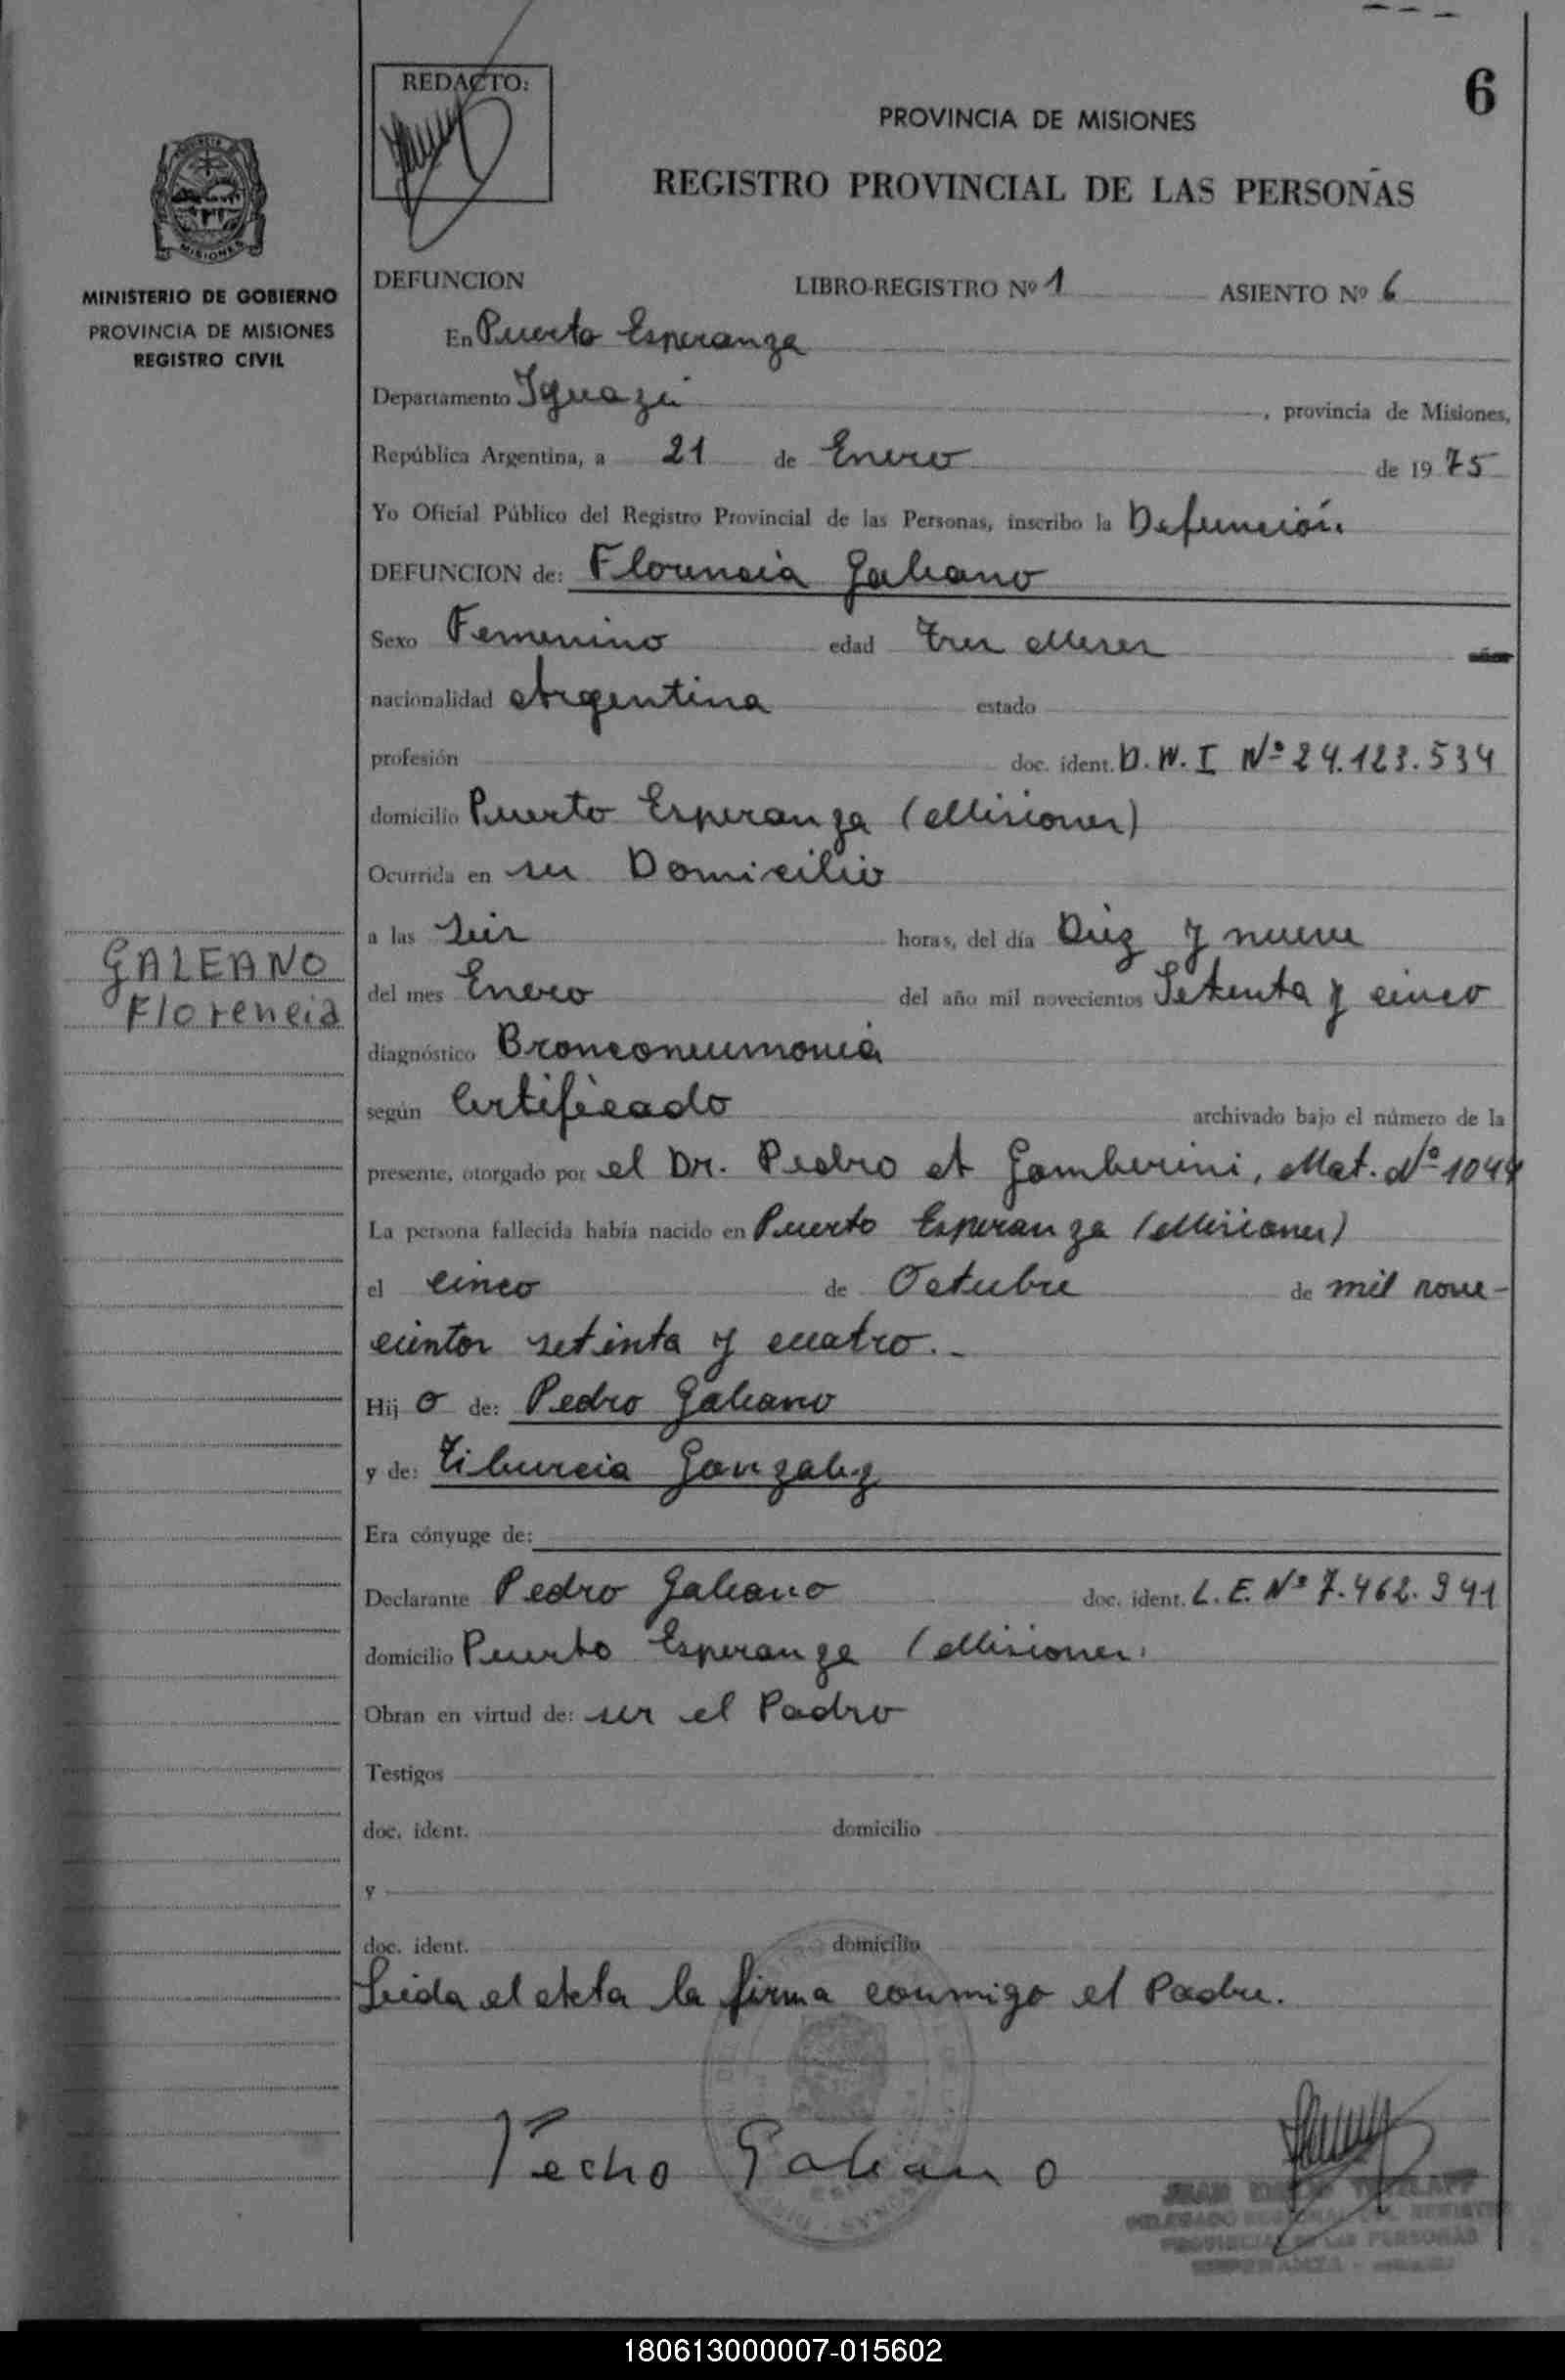 REDACTO:
6
PROVINCIA DE MISIONES
REGISTRO PROVINCIAL DE LAS PERSONAS
MISIONES
MINISTERIO DE GOBIERNO
PROVINCIA DE MISIONES
REGISTRO CIVIL
DEFUNCION LIBRO-REGISTRO Nº 1 ASIENTO Nº 6
En Puerto Esperanza
Departamento Iguazú, provincia de Misiones,
República Argentina, a 21 de Enero de 1975
Yo Oficial Público del Registro Provincial de las Personas, inscribo la Defunción
DEFUNCION de: Florencia Galeano
Sexo Femenino edad tres Meses años
nacionalidad Argentina estado
profesión doc. ident. D.N.I Nº 24.123.534
domicilio Puerto Esperanza (Misiones)
Ocurrida en su Domicilio
a las Seis horas, del día Diez y nueve
GALEANO
Florencia
del mes Enero del año mil novecientos Setenta y cinco
diagnóstico Bronconeumonia
según Certificado archivado bajo el número de la
presente, otorgado por el Dr. Pedro A Gamberini, Mat. Nº 1044
La persona fallecida había nacido en Puerto Esperanza (Misiones)
el cinco de Octubre de mil nove-
cientos setenta y cuatro.-
Hij o de: Pedro Galeano
y de: Tiburcia Gonzalez
Era cónyuge de:
Declarante Pedro Galeano doc. ident. L.E. Nº 7.462.941
domicilio Puerto Esperanza (Misiones)
Obran en virtud de: ser el Padre
Testigos
doc. ident. domicilio
y
doc. ident. domicilio
Leida el Acta la firma conmigo el Padre.
Pedro Galeano
JUAN
DELEGADO REGIONAL DEL REGISTRO
PROVINCIAL DE LAS PERSONAS
ESPERANZA -
180613000007-015602